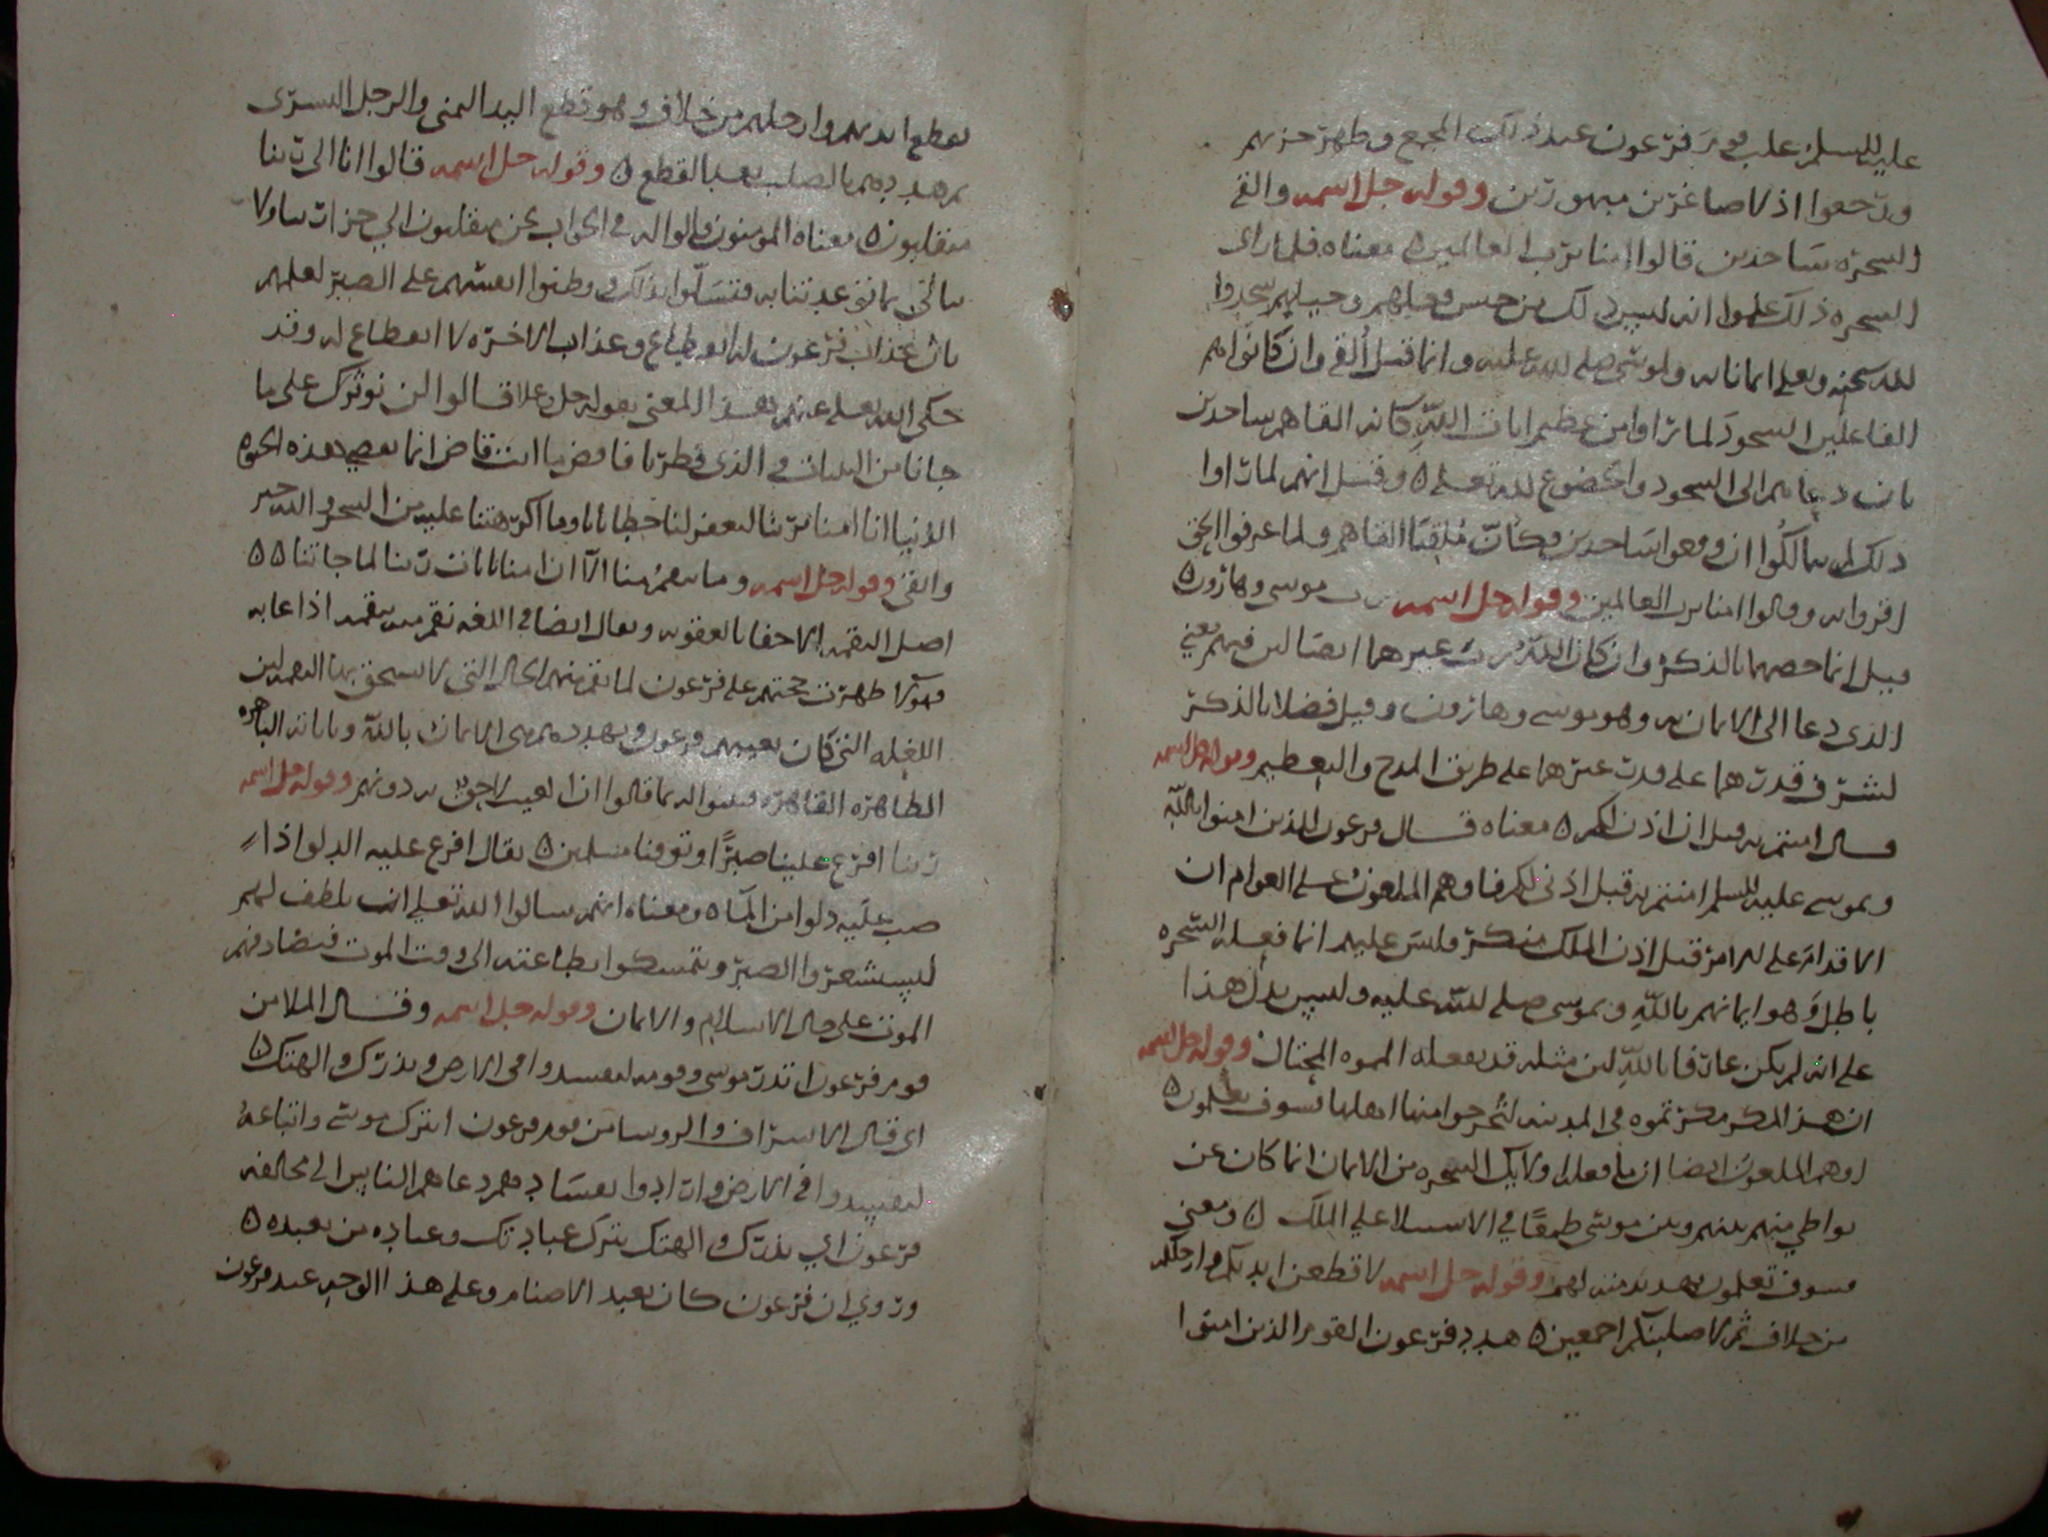 عليه السلم علب قومَ فرعون عند ذلك المجمع وظهر حزبهم
ورجعوا اذلا صاغرين مبهورين وقوله جل اسمه والقى
السحره ساجدين قالوا امنا برب العالمين ه معناه فلما راى
السحره ذلك علموا انه ليس ذلك من جنس فعلهم وحيلهم سجدوا
لله سحنه وتعلى ايمانا به ولموسى صلى الله عليه وانما قيل أُلقى وان كانوا هم
الفاعلين السجود لما راوا من عظيم ايات اللهِ كانه القاهم ساجدين
بان دعاهم الى السجود والخضوع لله تعلى ه وقيل انهم لما راوا
ذلك لم يتمالكوا ان وقعوا ساجدين فكان مُلقيًا القاهم ولما عرفوا الحق
اقروا به وقالوا امنا برب العالمين وقوله جل اسمه رب موسى وهارون ه
قيل انما خصهما بالذكر وان كان اللهُ رب غيرهما ايضا لان فيهم يعني
الذى دعا الى الايمان به وهو موسى وهارون وقيل فضلا بالذكر
لشرف قدرهما على قدر غيرهما على طريق المدح والتعظيم وقوله جل اسمه
قال امنتم به قبل ان اذن لكم ه معناه قال فرعون للذين امنوا بالله
وبموسى عليه السلم امنتم به قبل اذنى لكم فاوهم الملعون على العوام ان
الاقدام على الامر قبل اذن الملك منكر ولبس عليهم انما فعله السحره
باطل وهو ايمانهم باللهِ وبموسى صلى الله عليه وليس يدل هذا
على انه لم يكن عارفا باللهِ لان مثله قد يفعله المموه المحتال وقوله جل اسمه
ان هذا لمكر مكرتموه فى المدينه لتُخرجوا منها اهلها فسوف تعلمون ه
اوهم الملعون ايضا ان ما فعله اولايك السحره من الايمان انما كان عن
تواطي منهم بينهم وبين موسى طمعًا في الاستيلا على الملك ه ومعنى
فسوف تعلمون تهديد منه لهم وقوله جل اسمه لاقطعن ايديكم وارجلكم
من خلاف ثم لاصلبنكم اجمعين ه هدد فرعون القوم الذين امنوا
بقطع ايديهم وارجلهم من خلاف وهو قطع اليد اليمنى والرجل اليسرى
ثم هددهم بالصلب بعد القطع ه وقوله جل اسمه قالوا انا الى ربنا
منقلبون ه معناه المومنون قالوا له في الجواب نحن منقلبون الي جزا ربنا ولا
نبالى بما توعدتنا به فتسلوا بذلك ووطنوا انفسهم على الصبر لعلمهم
بان عذاب فرعون له انقطاع وعذاب الاخره لا انقطاع له وقد
حكى الله تعلى عنهم هذا المعنى بقوله جل وعلا قالوا لن نوثرك على ما
جانا من البينات والذى فطرنا فاقض ما انت قاض انما تقضي هذه الحيوه
الدنيا انا امنا بربنا ليغفر لنا خطايانا وما اكرهتنا عليه من السحر والله خير
وابقى وقوله جل اسمه وما تنقمُ منا الا ان امنا بايات ربنا لما جاتنا ه ه
اصل النقمه الاخذ بالعقوبه ويقال ايضا في اللغه نقم منه ينقم اذا عابه
فهولا ظهرت حجتهم على فرعون لما نقم منهم الحال التي لا يستحق بها النقمه لان
الفعله التى كان يعيبهم فرعون ويهددهم هى الايمان باللهِ وباياته الباهره
الظاهره القاهره فبينوا له بما قالوا ان لا عيب لاحق به دونهم وقوله جل اسمه
ربنا افرغ علينا صبرًا وتوفنا مسلمين ه يقال افرغ عليه الدلو اذا
صب عليه دلوا من الماء ه ومعناه انهم سالوا الله تعلي ان يلطف لهم
ليستشعروا الصبر ويتمسكوا بطاعته الى وقت الموت فيصادفهم
الموت على حال الاسلام والايمان وقوله جل اسمه وقال الملا من
قوم فرعون اتذر موسى وقومه ليفسدوا فى الارض ويذرك والهتك ه
اى قال الاشراف والروسا من قوم فرعون اتترك موسى واتباعهُ
ليفسدوا في الارض وارادوا بفسادهم دعاهم الناس الى مخالفه
فرعون اي يذرك والهتك يترك عبادتك وعباده من تعبده ه
وروي ان فرعون كان يعبد الاصنام وعلى هذا الوجه عبد فرعون